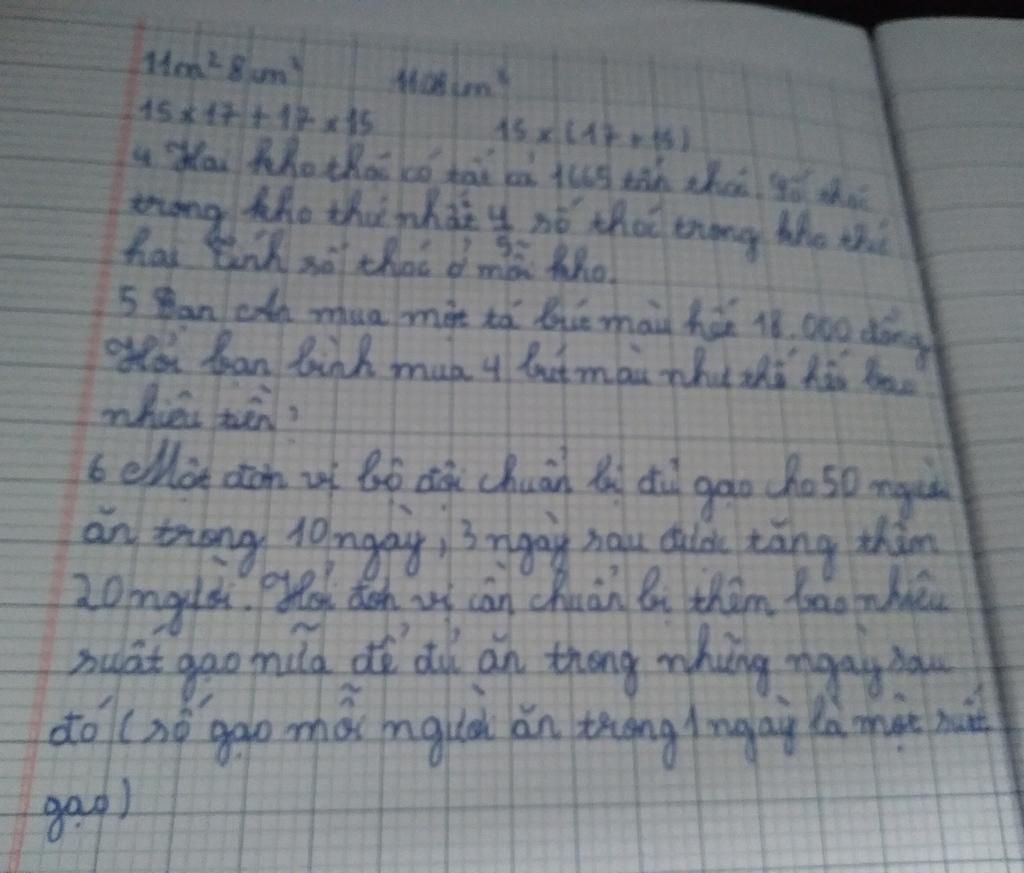 11m² 8cm² 1108cm²
15 x 17 + 17 x 15 15 x (17 + 15)
4 Hai kho thóc có tất cả 1665 tấn thóc. Số thóc
trong kho thứ nhất 4/5 số thóc trong kho thứ
hai tính số thóc ở mỗi kho.
5 Bạn An mua một tá bút màu hết 18.000 đồng
Hỏi bạn bình mua 4 bút màu như thế hết bao
nhiêu tiền?
6 Một đơn vị bộ đội chuẩn bị đủ gạo cho 50 người
ăn trong 10 ngày, 3 ngày sau được tăng thêm
20 người. Hỏi đơn vị cần chuẩn bị thêm bao nhiêu
suất gạo nữa để đủ ăn trong những ngày sau
đó (số gạo mỗi người ăn trong 1 ngày là một suất
gạo)